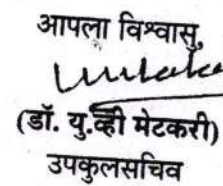 आपला विश्वासू,
(डॉ. यु.व्ही मेटकरी)
उपकुलसचिव